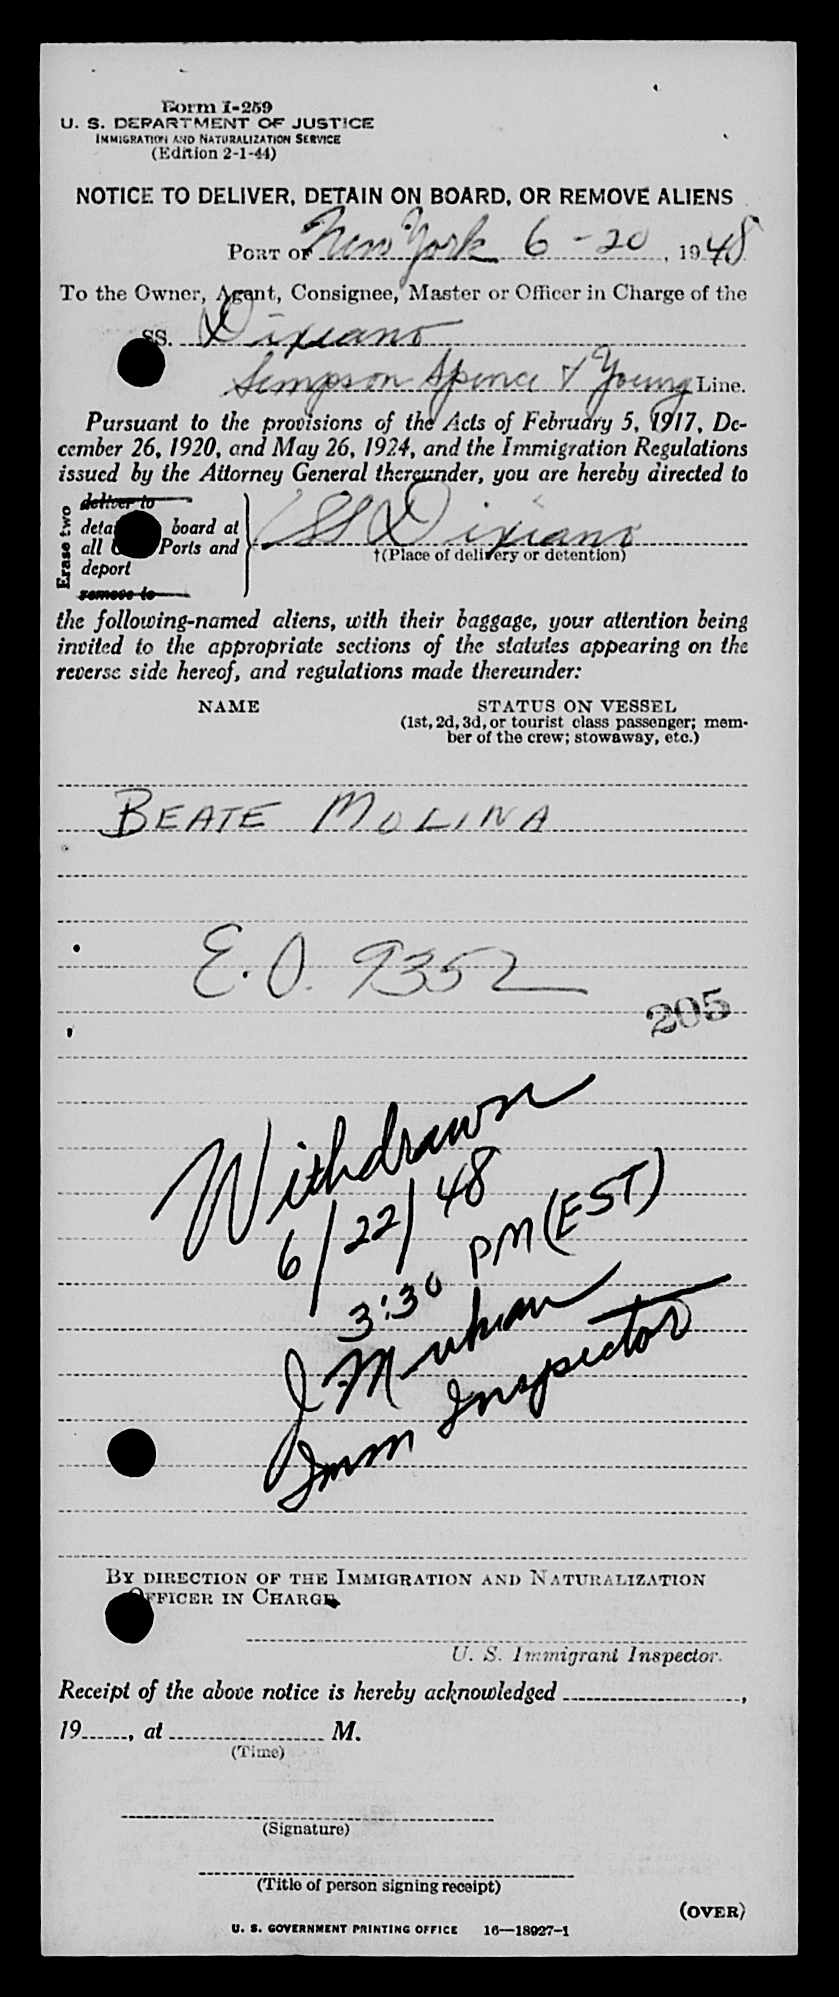 Form I-259
U. S. DEPARTMENT OF JUSTICE
IMMIGRATION AND NATURALIZATION SERVICE
(Edition 2-1-44)
NOTICE TO DELIVER, DETAIN ON BOARD, OR REMOVE ALIENS
PORT OF New York 6-20, 1948
To the Owner, Agent, Consignee, Master or Officer in Charge of the
SS. Dixiano
Simpson Spence & Young Line.
Pursuant to the provisions of the Acts of February 5, 1917, De-
cember 26, 1920, and May 26, 1924, and the Immigration Regulations
issued by the Attorney General thereunder, you are hereby directed to
Erase two
deliver to
deta board at
all Ports and
deport
remove to
SS Dixiano
†(Place of delivery or detention)
the following-named aliens, with their baggage, your attention being
invited to the appropriate sections of the statutes appearing on the
reverse side hereof, and regulations made thereunder:
NAME STATUS ON VESSEL
(1st, 2d, 3d, or tourist class passenger; mem-
ber of the crew; stowaway, etc.)
BEATE MOLINA
E.O. 9352
205
Withdrawn
6/22/48
3:30 PM (EST)
J.
Imm Inspector
BY DIRECTION OF THE IMMIGRATION AND NATURALIZATION
OFFICER IN CHARGE.
U. S. Immigrant Inspector.
Receipt of the above notice is hereby acknowledged ,
19 , at M.
(Time)
(Signature)
(Title of person signing receipt)
(OVER)
U. S. GOVERNMENT PRINTING OFFICE 16—18927-1